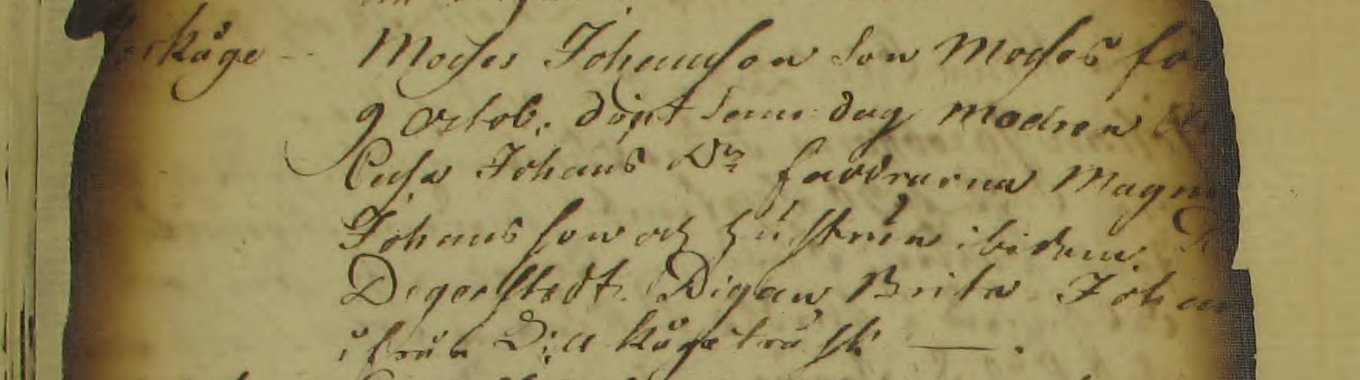 kåge - Moses Johansson Son Moses föd
9 Octob. döpt samma dag modren
Cajsa Johans Dr faddrarna Magn
Johansson och hustrun ibidem
Degerstedt. Pigan Brita Johan
ifrån D:o Kågeträsk — .